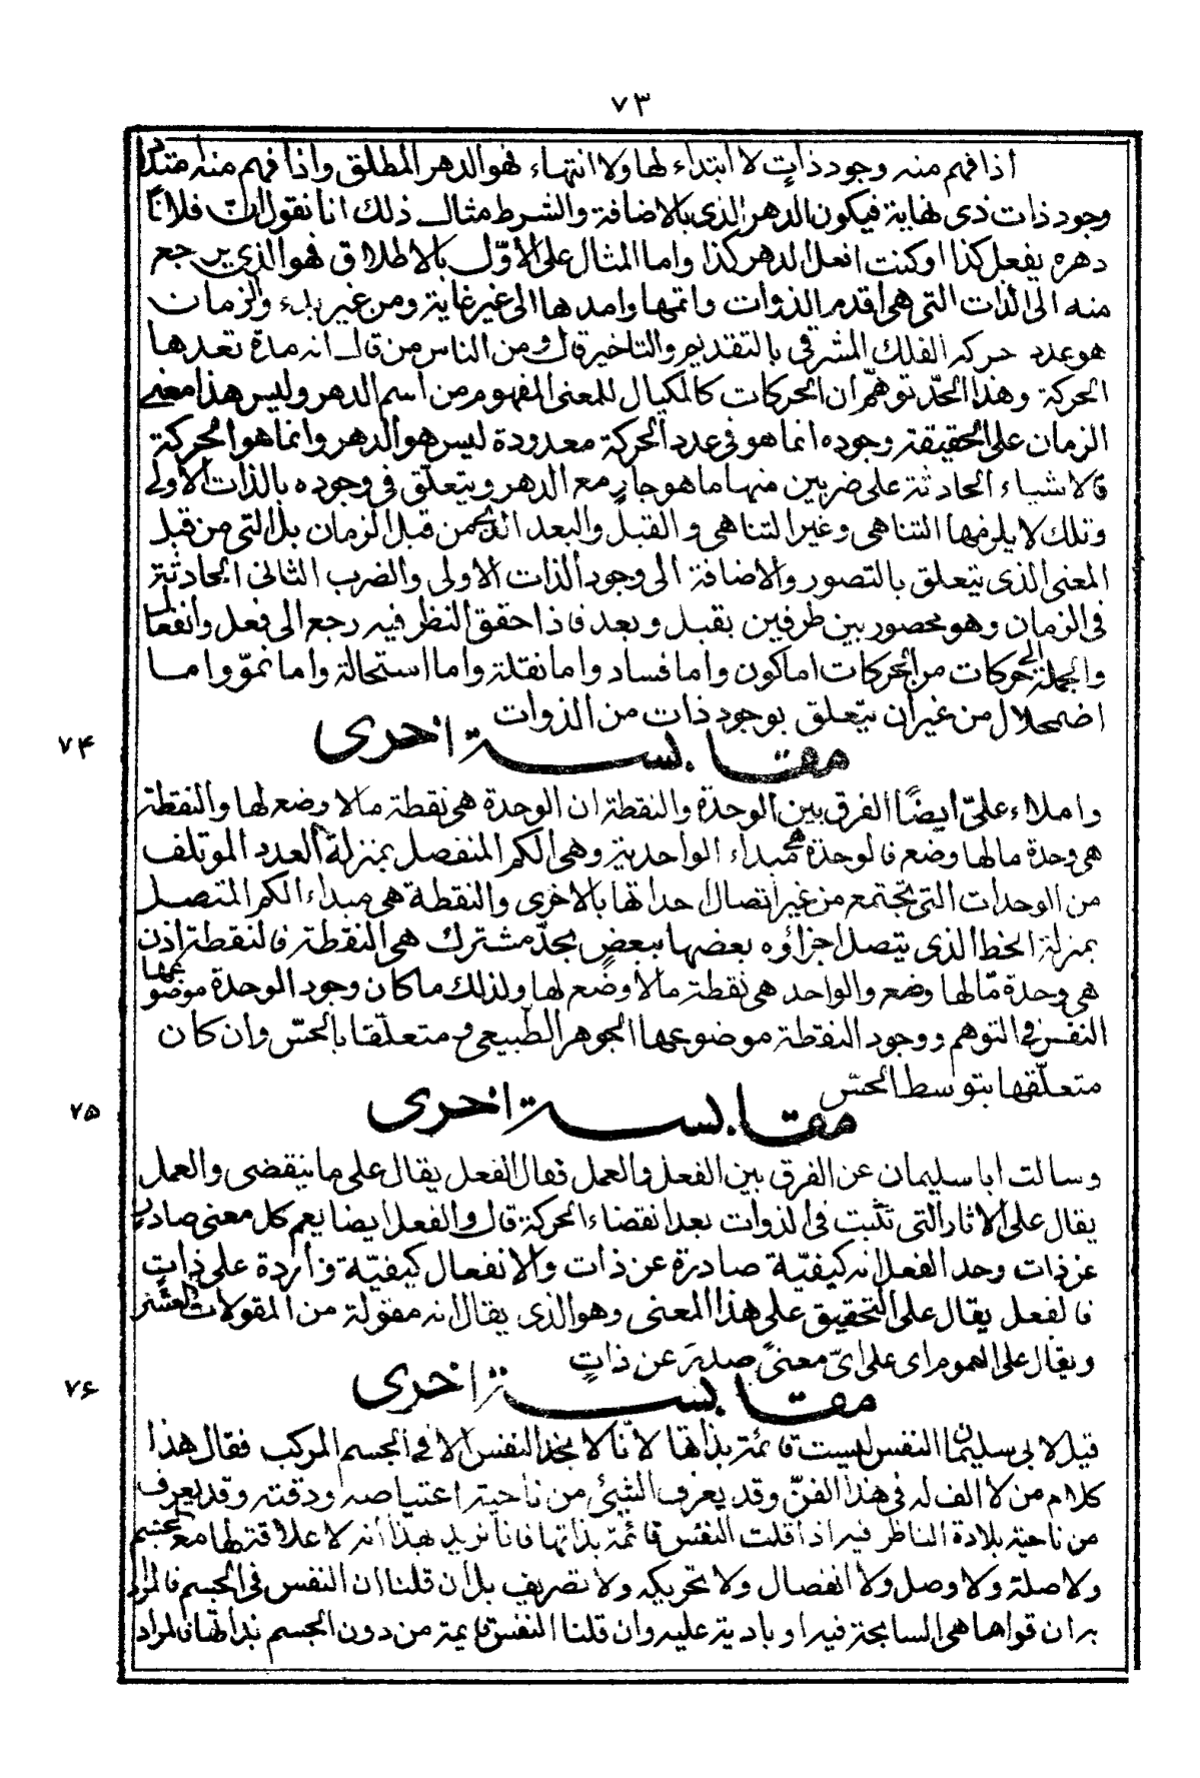 ٧٣
اذا فهم منه وجود ذاتٍ لا ابتداء لها ولا انتهاء فهو الدهر المطلق واذا فهم منه
وجود ذات ذى نهاية فيكون الدهر الذى بالاضافة والشرط مثال ذلك انا نقول انّ فلانًا
دهره يفعل كذا او كنت افعل الدهر كذا واما المثال على الاوّل بالاطلاق فهو الذى يرجع
منه الى الذات التى هى اقدم الذوات واتمها وامدها الى غير غاية ومن غير بدء والزمان
هو عدد حركة الفلك المشرقى بالتقديم والتاخير قال ومن الناس من قال انه مدة تعدها
الحركة وهذا الحدّ توهّم ان الحركات كالمكيال للمعنى المفهوم من اسم الدهر وليس هذا معنى
الزمان على الحقيقة وجوده انما هو فى عدد الحركة معدودة ليس هو الدهر وانما هو الحركة
فالاشياء الحادثة على ضربين منها ما هو جارٍ مع الدهر ويتعلّق فى وجوده بالذات الاولى
وتلك لا يلزمها التناهى وغير التناهى والقبل والبعد الذى من قبل الزمان بل التى من قبل
المعنى الذى يتعلق بالتصور والاضافة الى وجود الذات الاولى والضرب الثانى الحادثة
فى الزمان وهو محصور بين طرفين بقبل وبعد فاذا حقق النظر فيه رجع الى فعل وانفعال
والجملة الى حركات من الحركات اما كون واما فساد واما نقلة واما استحالة واما نموّ واما
اضمحلال من غير ان يتعلق بوجود ذات من الذوات
مقابسة اخرى
٧۴
واملاء علىّ ايضًا الفرق بين الوحدة والنقطة ان الوحدة هى نقطة ما لا وضع لها والنقطة
هى وحدة ما لها وضع فالوحدة هى مبداء الواحدية وهى الكم المنفصل بمنزلة العدد الموتلف
من الوحدات التى تجتمع من غير اتصال احداها بالاخرى والنقطة هى مبداء الكم المتصل
بمنزلة الخط الذى يتصل اجزاؤه بعضها ببعض بحدّ مشترك هى النقطة فالنقطة اذن
هى وحدة مّا لها وضع والواحد هى نقطة ما لا وضع لها ولذلك ما كان وجود الوحدة موضوعها
النفس فى التوهم ووجود النقطة موضوعها الجوهر الطبيعى و متعلّقا بالحسّ وان كان
متعلّقها بتوسط الحسّ
مقابسة اخرى
٧۵
وسالت ابا سليمان عن الفرق بين الفعل والعمل فقال الفعل يقال على ما ينقضى والعمل
يقال على الاثار التى تثبت فى الذوات بعد انقضاء الحركة قال والفعل ايضا يعم كل معنى صادرٍ
عن ذات وحد الفعل انه كيفيّة صادرة عن ذات والانفعال كيفيّة واردة على ذاتٍ
فالفعل يقال على التحقيق على هذا المعنى وهو الذى يقال انه مقولة من المقولات العشر
ويقال على العموم اى على اىّ معنىً صدر عن ذاتٍ
مقابسة اخرى
٧۶
قيل لابى سليمان النفس ليست قائمة بذاتها لانّا لا نجد النفس الا فى الجسم المركب فقال هذا
كلام من لا الف له فى هذا الفنّ وقد يعرف الشئ من ناحية اعتياصه ودقته وقد يعرف
من ناحية بلادة الناظر فيه اذا قلت النفس قائمة بذاتها فانا نريد بهذا انه لا علاقة لها مع الجسم
ولا صلة ولا وصل ولا انفصال ولا تحريكه ولا تصريف بل ان قلنا ان النفس فى الجسم فالمراد
به ان قواها هى السابحة فيه او بادية عليه وان قلنا النفس قايمة من دون الجسم بذاتها فالمراد